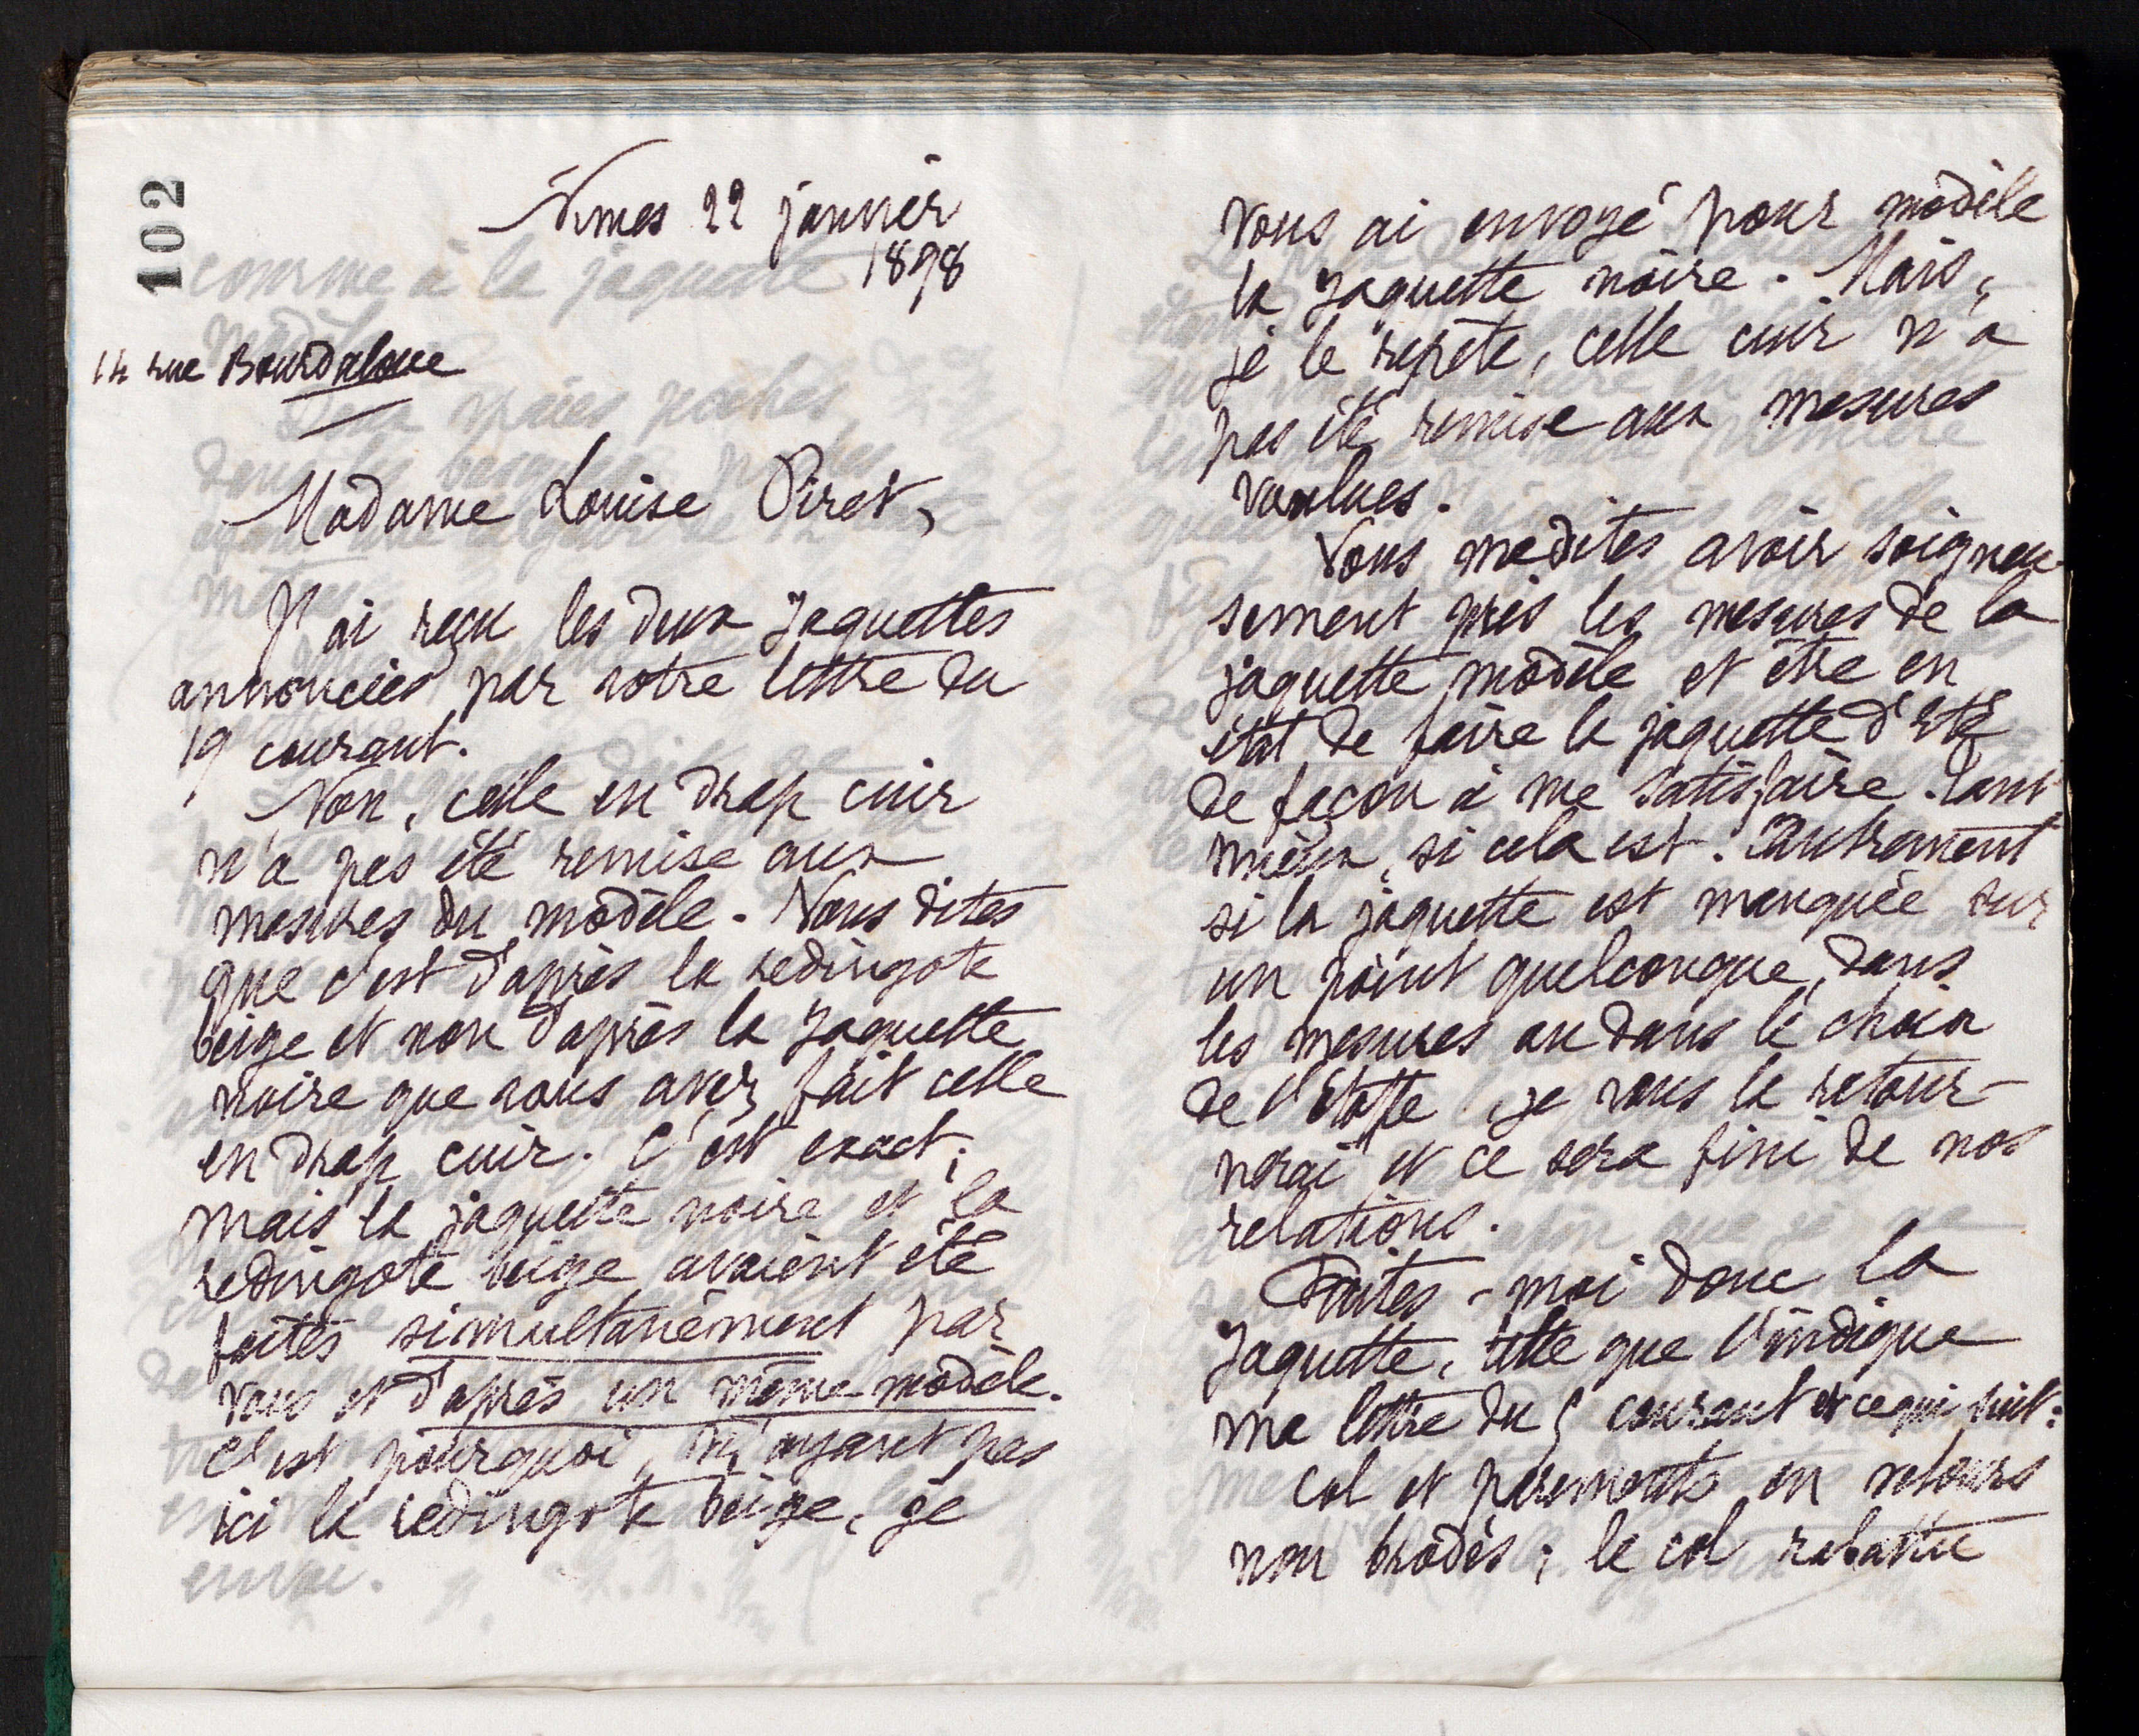 102
Nîmes 22 janvier
1898
14 rue Bourdaloue
Madame Louise Piret,
J'ai reçu les deux jaquettes
annoncées par votre lettre du
19 courant.
Non, celle en drap cuir
n'a pas été remise aux
mesures du modèle. Vous dites
que c'est d'après la redingote
beige et non d'après la jaquette
noire que vous avez fait celle
en drap cuir. C'est exact;
mais la jaquette noire et la
redingote beige avaient été
faites simultanément par
vous et d'après un même modèle.
C'est pourquoi, n'ayant pas
ici la redingote beige, je
vous ai envoyé pour modèle
la jaquette noire. Mais,
je le répète, celle cuir n'a
pas été remise aux mesures
voulues.
Vous me dites avoir soigneu-
sement pris les mesures de la
jaquette modèle et être en
état de faire la jaquette d'été
de façon à me satisfaire. Tant
mieux, si cela est. Autrement
si la jaquette est manquée sur
un point quelconque, dans
les mesures ou dans le choix
de l'étoffe, je vous la retour-
nerai et ce sera fini de nos
relations.
Faites-moi donc la
jaquette, telle que l'indique
ma lettre du 5 courant et ce qui suit:
Col et parements en velours
non brodés; le col rabattu